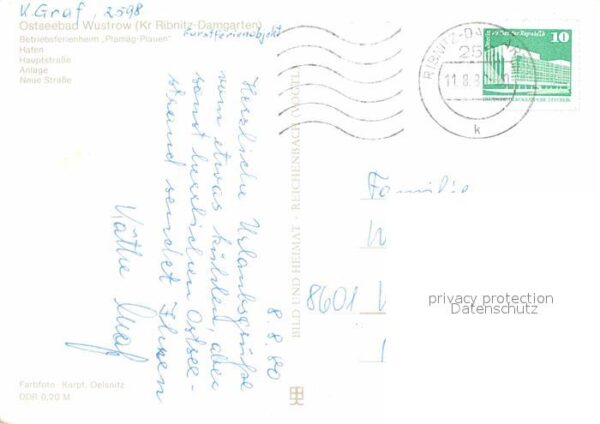 K. Graf, 2598
Ostseebad Wustrow (Kr Ribnitz-Damgarten)
Kunstferienobjekt
Betriebsferienheim „Plamag-Plauen"
Hafen
Hauptstraße
Anlage
Neue Straße
8.8.80
Herzliche Urlaubsgrüße
vom etwas kühlen, aber
sonst herrlichen Ostsee-
strand sendet Ihnen
Käthe Graf
Farbfoto - Karpf, Oelsnitz
DDR 0,20 M
BILD UND HEIMAT - REICHENBACH (VOGTL)
RIBNITZ-DA
25
11.8.80
k
10
Familie
8601
privacy protection
Datenschutz